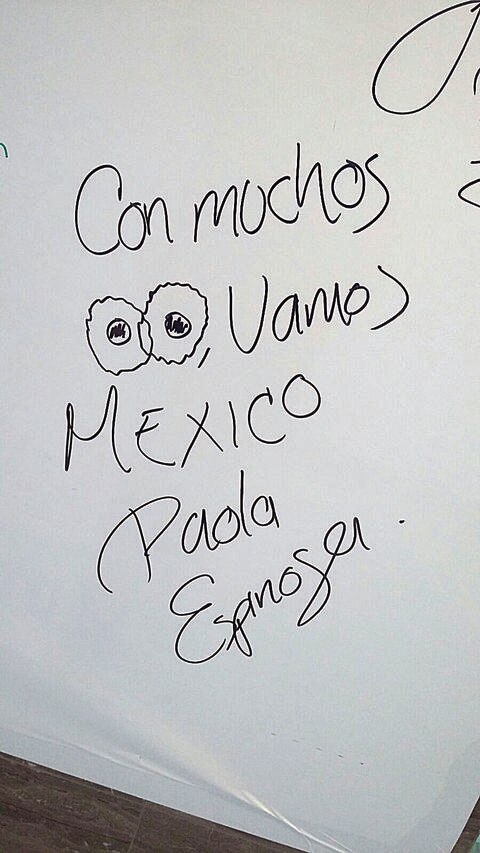 Con muchos
, Vamos
MEXICO
Paola
Espinosa.